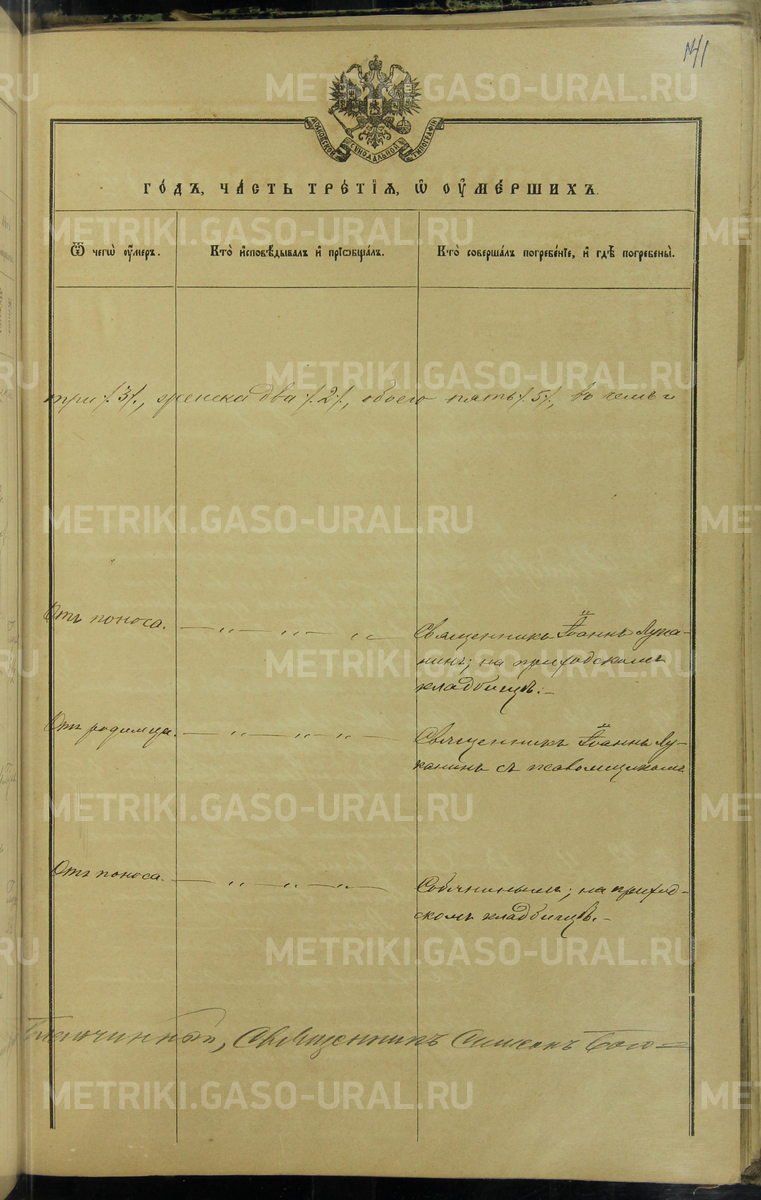 141
МОСКОВСКОЙ СѴНОДАЛЬНОЙ ТИПОГРАФІИ
ГО́ДЪ, ЧА́СТЬ ТРЕ́ТІѦ, Ѡ ОУ҆МЕ́РШИХЪ.
Ѿ чегѡ̀ оу҆́меръ.
Кто̀ и҆сповѣ́дывалъ и҆ прїѡбща́лъ.
Кто̀ соверша́лъ погребе́нїе, и҆ гдѣ̀ погребены̀.
три /.3/., женска два /.2/., обоего пять /.5/., въ чемъ и
Отъ поноса.
Священникъ Іоаннъ Лука-
нинъ; на приходскомъ
кладбищѣ.–
Отъ родимца.
Священникъ Іоаннъ Лу-
канинъ съ псаломщикомъ
Отъ поноса.
на приход-
скомъ кладбищѣ.–
Благочинный, Священникъ Симеонъ Бого=
METRIKI.GASO-URAL.RU